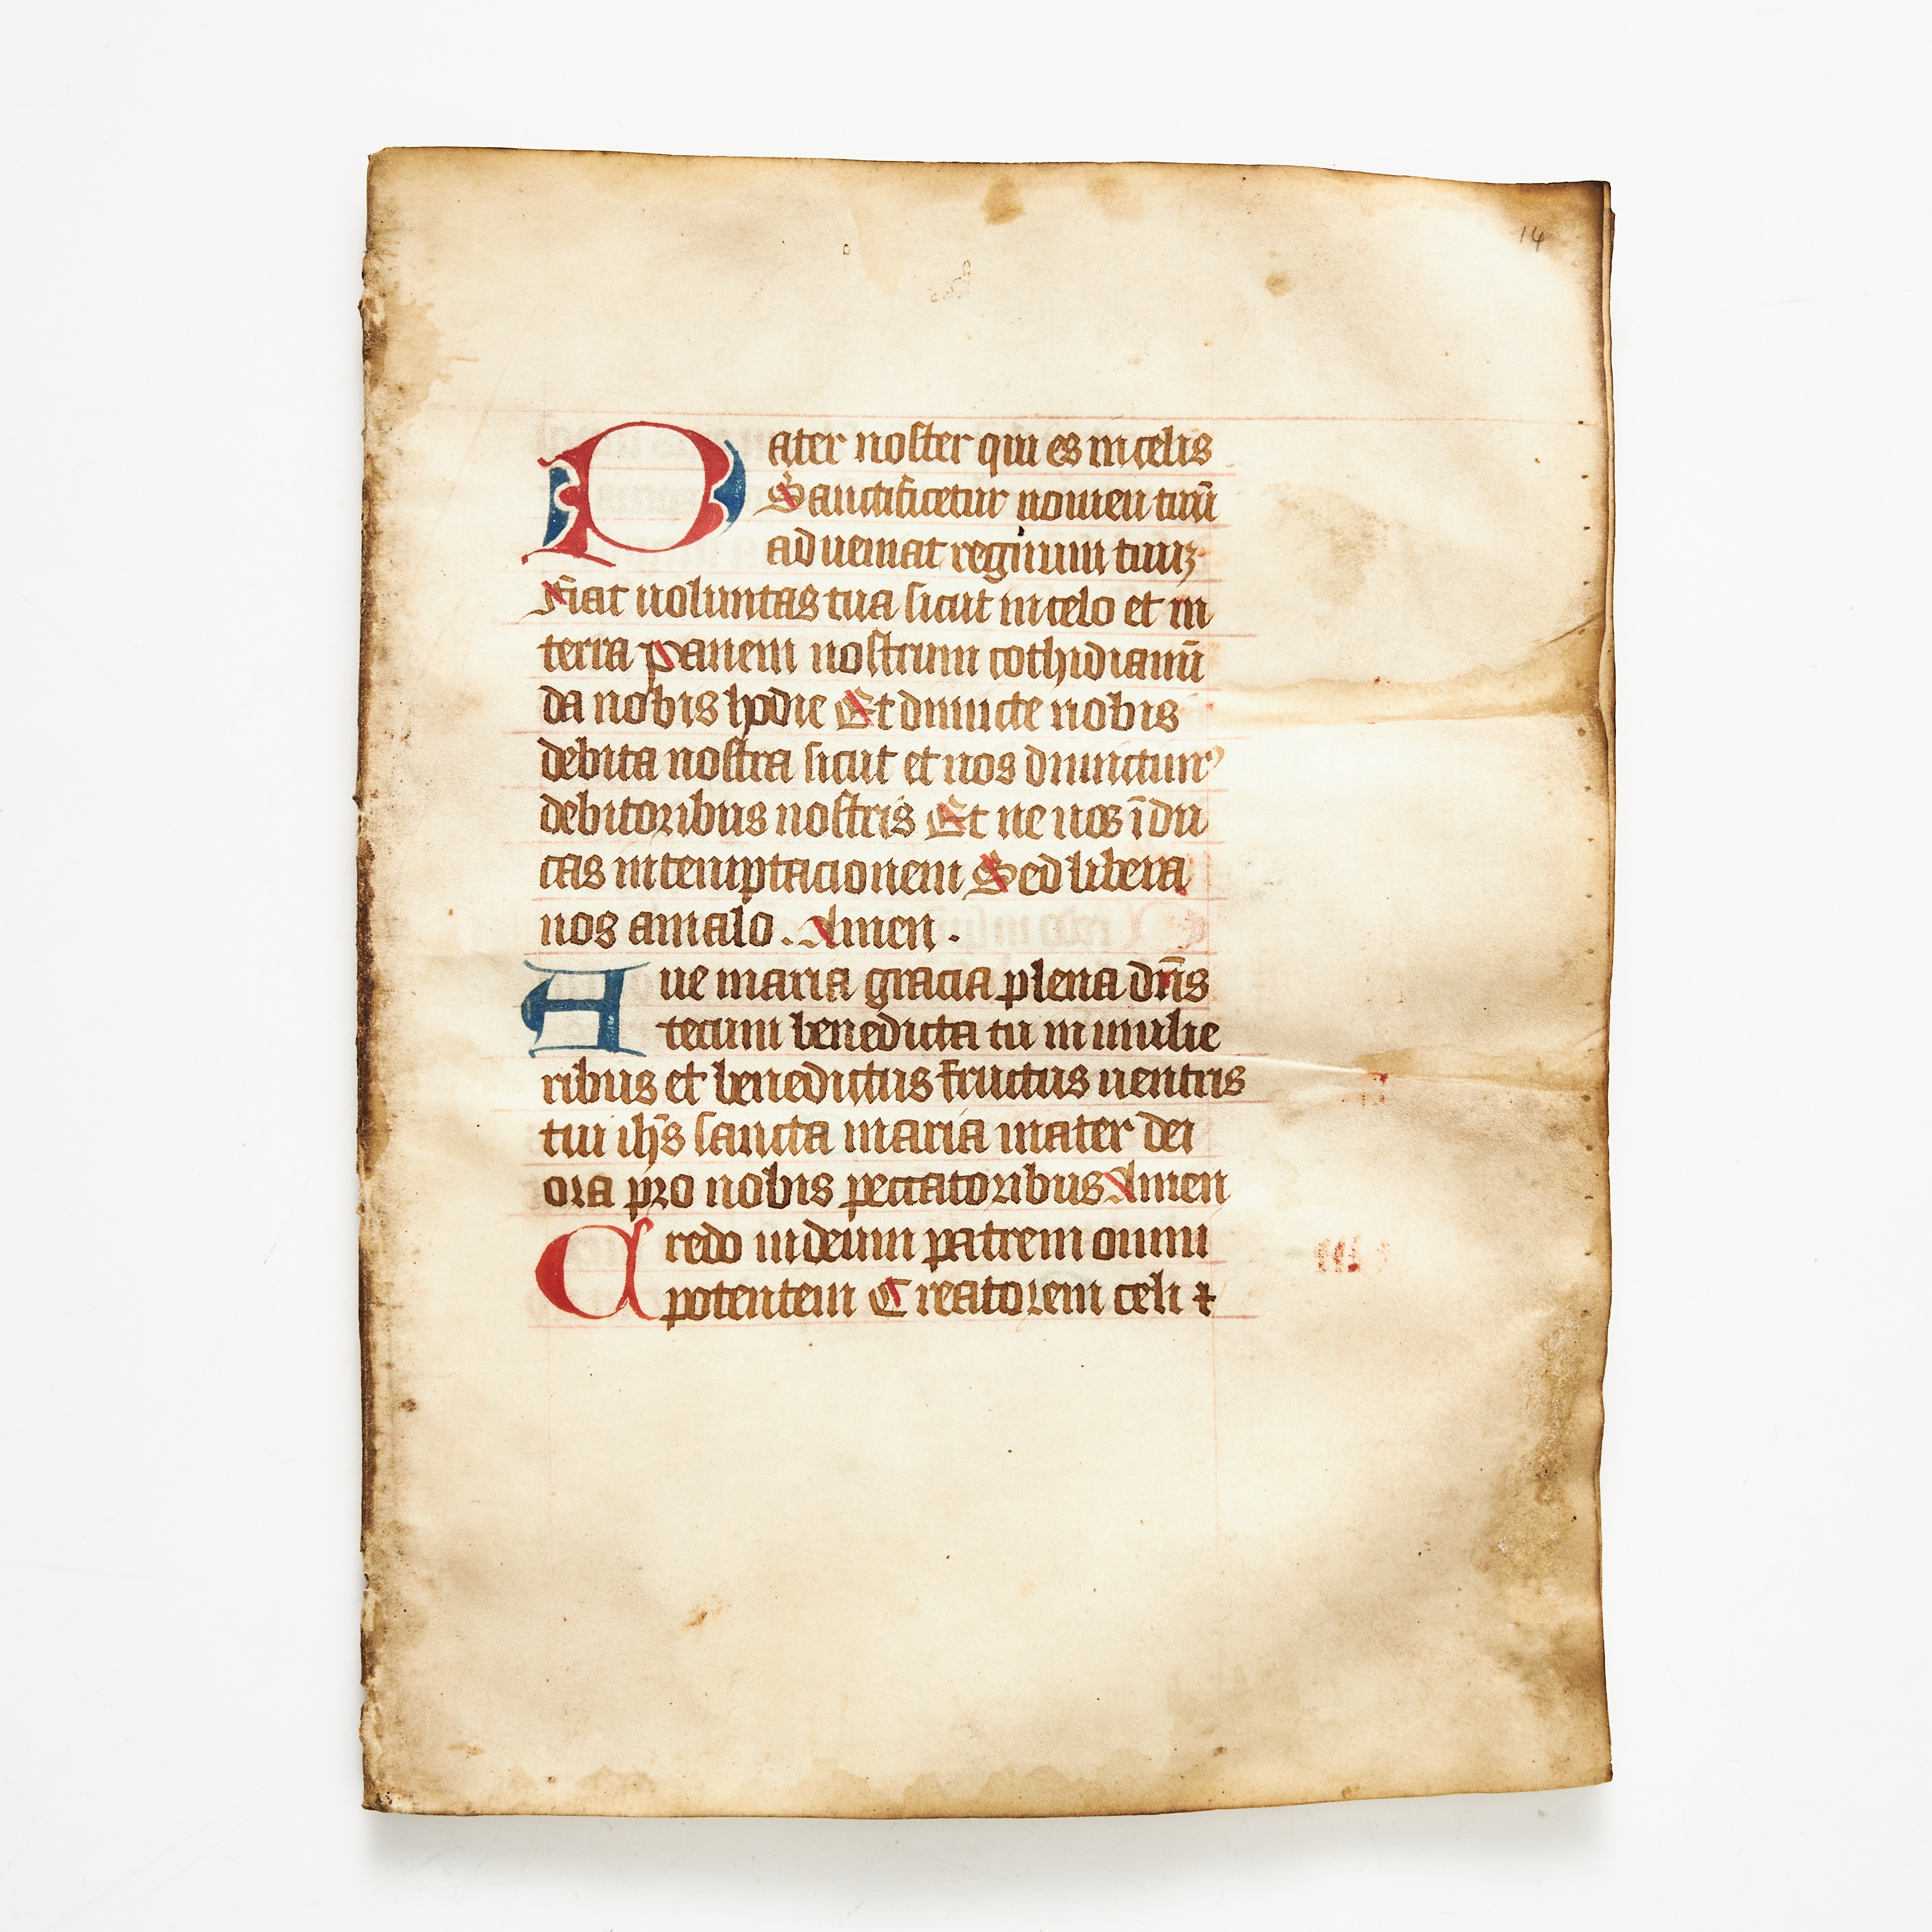 14
Pater noster qui es in celis
Sanctificetur nomen tuū
adueniat regnum tuuʒ
Fiat uoluntas tua sicut in celo et in
terra Panem nostrum cothidianū
da nobis hodie Et dimicte nobis
debita nostra sicut et nos dimictimꝰ
debitoribus nostris Et ne nos īdu
cas in temptacionem Sed libera
nos amalo. Amen.
Aue maria gracia plena dn̄s
tecum benedicta tu in mulie
ribus et benedictus fructus uentris
tui ihs̄ sancta maria mater dei
ora pro nobis peccatoribus Amen
Credo in deum patrem omni
potentem Creatorem celi ⁊